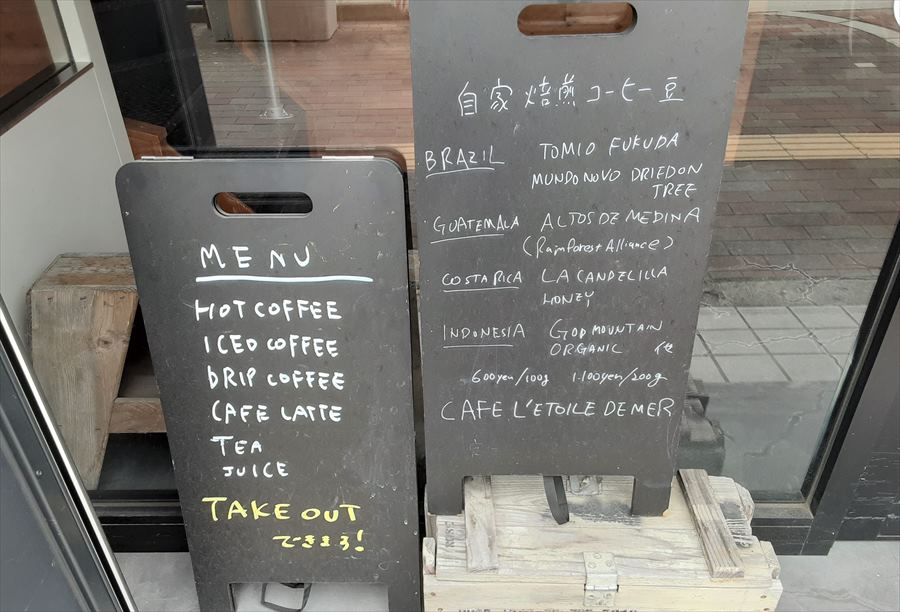 MENU
HOT COFFEE
ICED COFFEE
DRIP COFFEE
CAFE LATTE
TEA
JUICE
TAKE OUT
できます!
自家焙煎コーヒー豆
BRAZIL TOMIO FUKUDA
MUNDO NOVO DRIED ON
TREE
GUATEMALA ALTOS DE MEDINA
(Rainforest Alliance)
COSTA RICA LA CANDELILLA
HONEY
INDONESIA GOD MOUNTAIN
ORGANIC 他
600yen/100g 1.100yen/200g
CAFE L'ETOILE DE MER